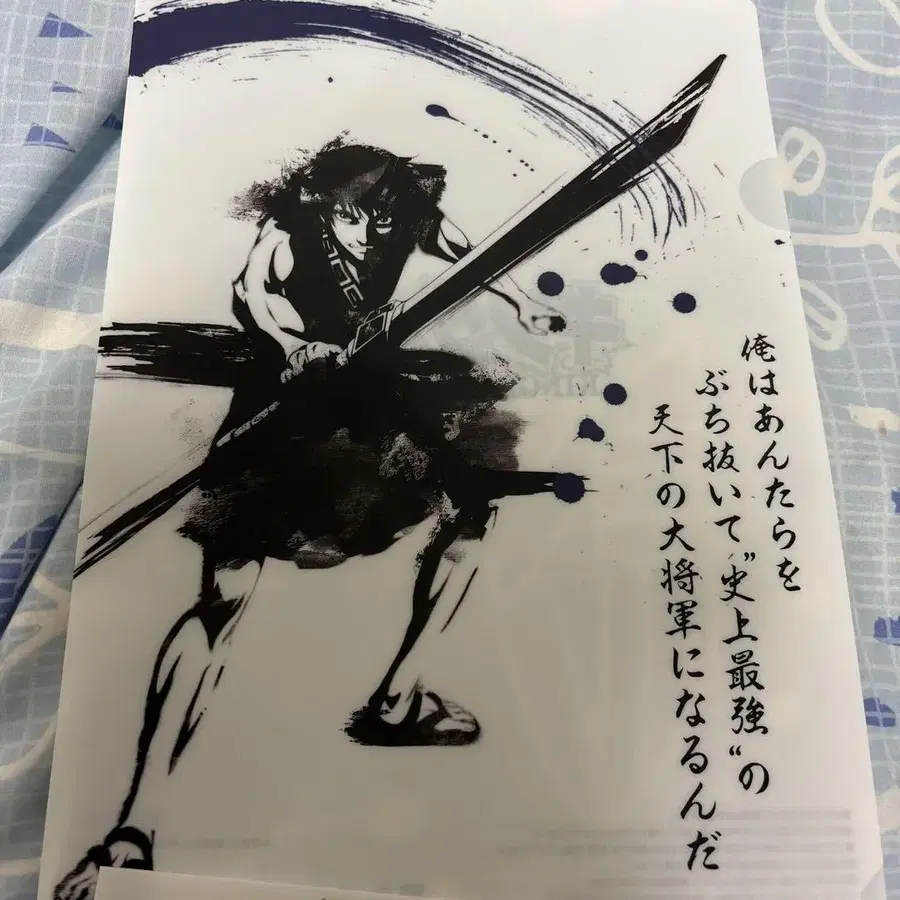 俺はあんたらを
ぶち抜いて"史上最強"の
天下の大将軍になるんだ